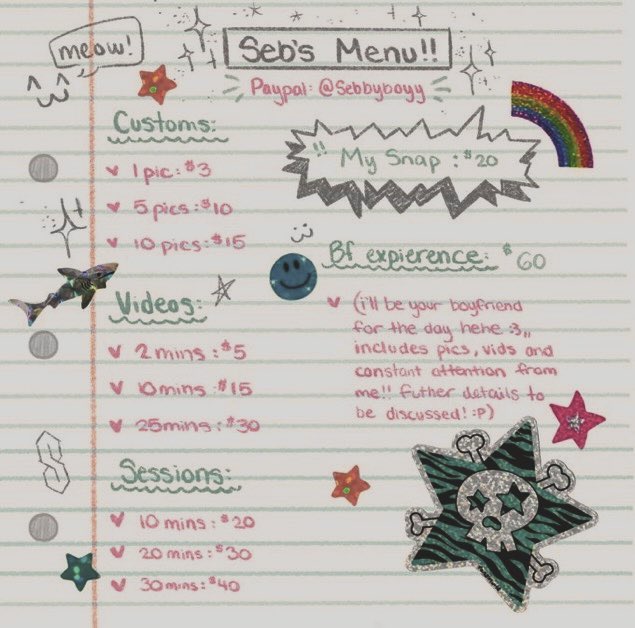 meow!
Seb's Menu!!
Paypal: @Sebbyboyy
Customs:
1 pic: $3
5 pics: $10
10 pics: $15
!! My Snap : $20
:3
Bf expierence: $60
(i'll be your boyfriend
for the day hehe :3,,
includes pics, vids and
constant attention from
me!! futher details to
be discussed! :P)
Videos:
2 mins : $5
10mins : $15
25mins : $30
Sessions:
10 mins : $20
20 mins : $30
30 mins : $40